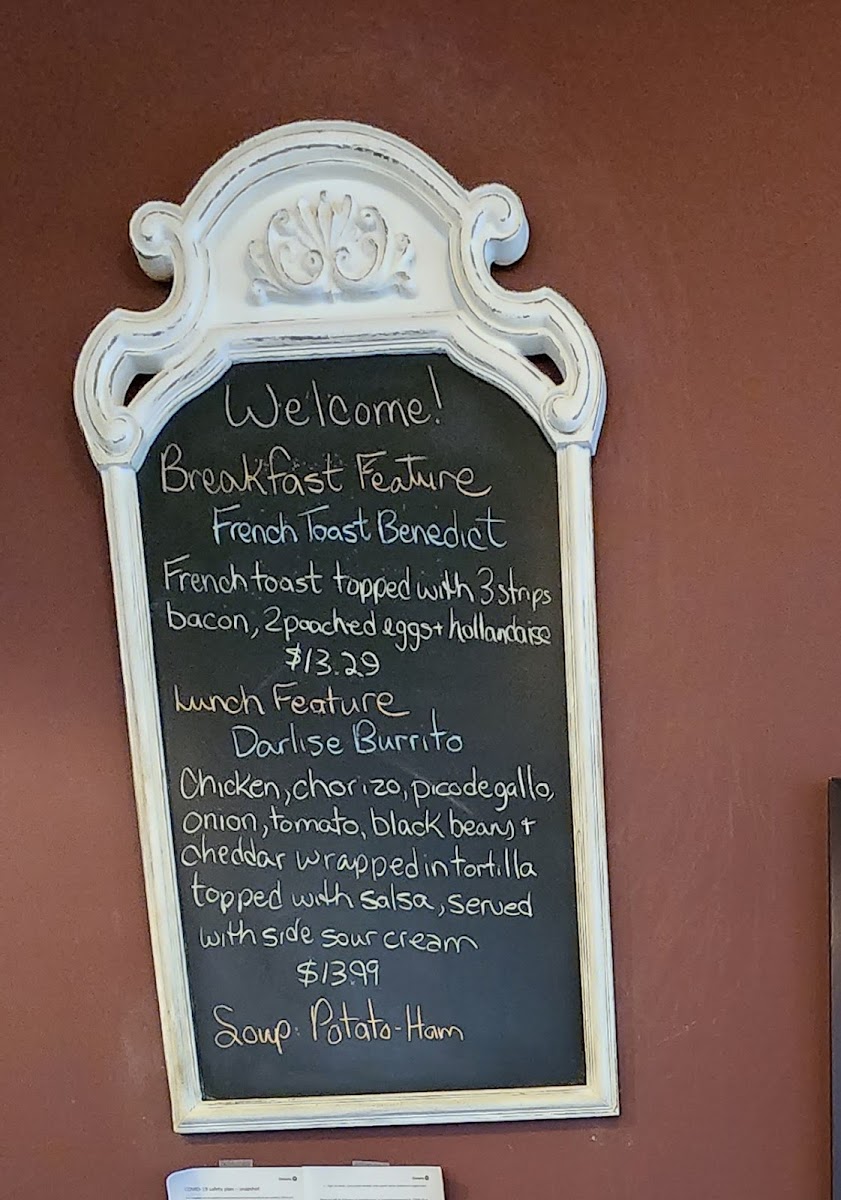 Welcome!
Breakfast Feature
French Toast Benedict
French toast topped with 3 strips
bacon, 2 poached eggs + hollandaise
$13.29
Lunch Feature
Darlise Burrito
Chicken, chorizo, pico de gallo,
onion, tomato, black beans +
cheddar wrapped in tortilla
topped with salsa, served
with side sour cream
$13.99
Soup: Potato-Ham
COVID-19 safety plan – snapshot